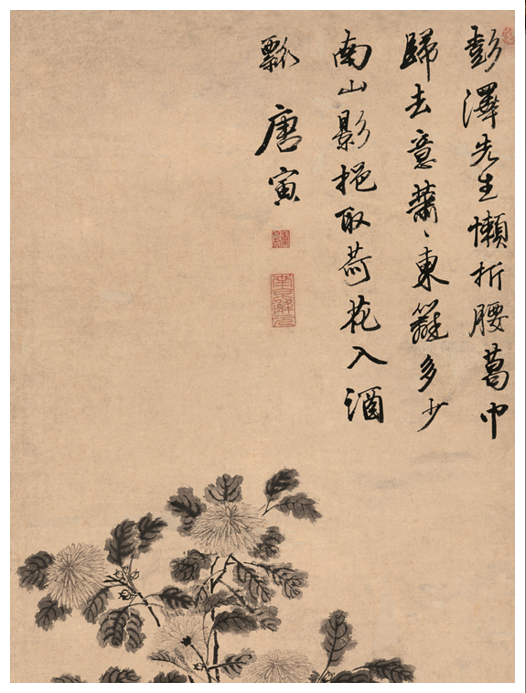 彭澤先生懶折腰葛巾
歸去意蕭丶東籬多少
南山影挹取荷花入酒
瓢
唐寅
南京解元